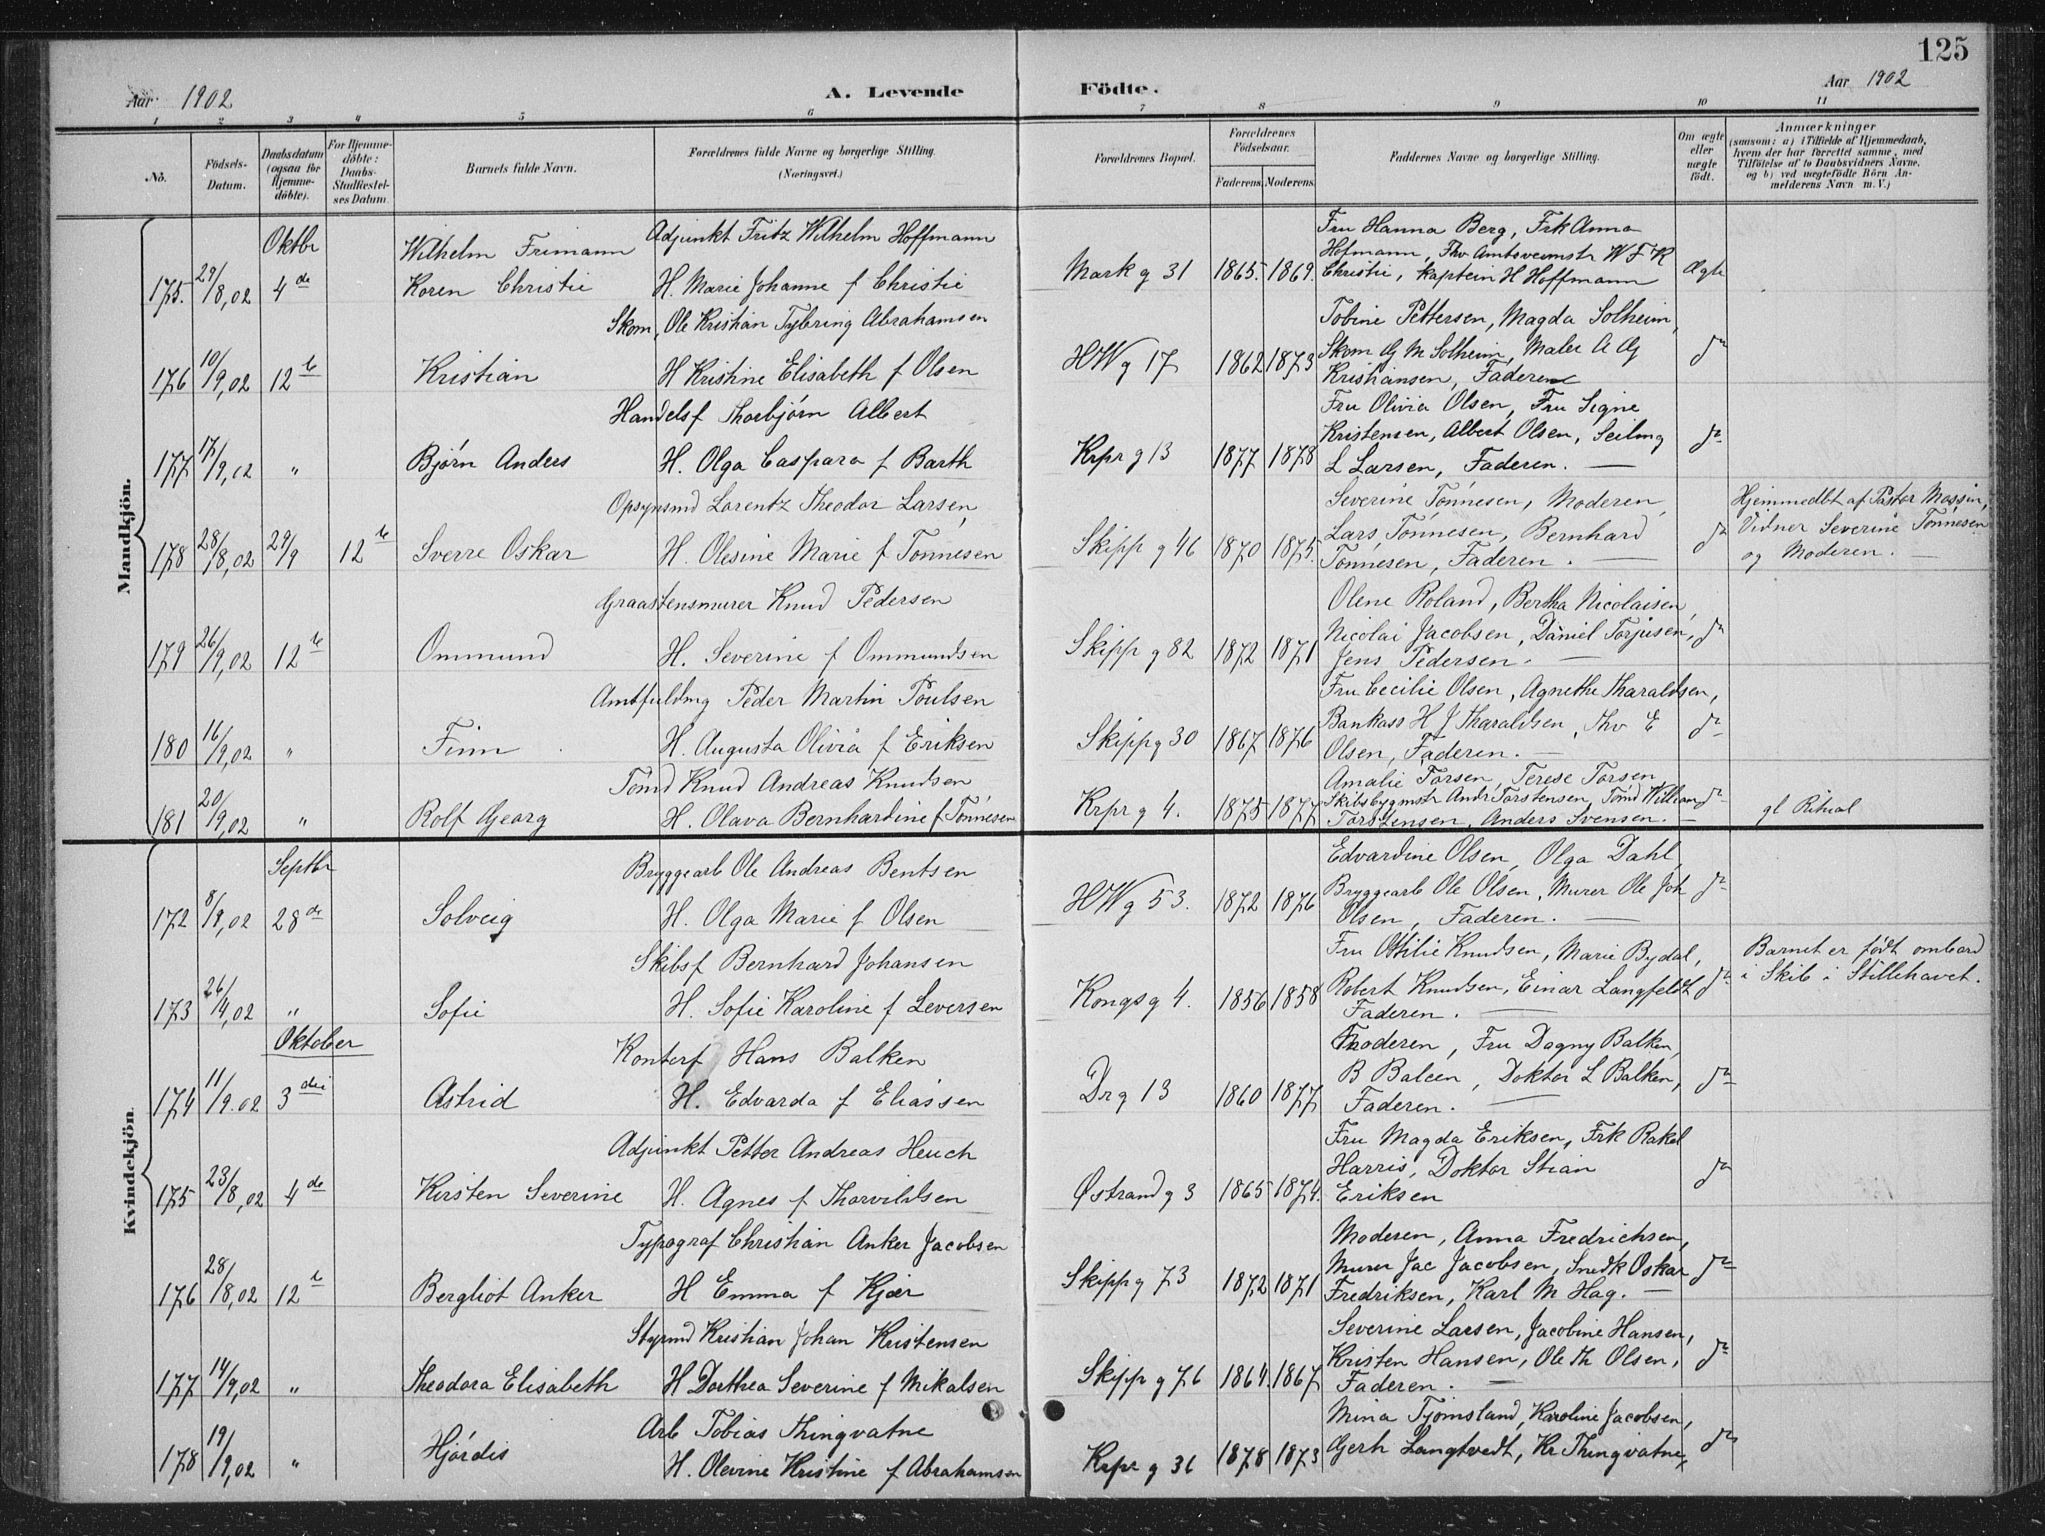 125
Aar 1902
A. Levende
Födte.
Aar 1902
1 2 3 4 5 6 7 8 9 10 11
No.
Födsels-Datum.
Daabsdatum (ogsaa for Hjemme-döbte).
For Hjemme-döbte: Daabs-Stadfæstel-ses Datum.
Barnets fulde Navn.
Forældrenes fulde Navne og borgerlige Stilling.
(Næringsvei.)
Forældrenes Bopæl.
Forældrenes Födselsaar.
Faderens. Moderens.
Faddernes Navne og borgerlige Stilling.
Om ægte eller uægte födt.
Anmærkninger
(saasom: a) i Tilfælde af Hjemmedaab,
hvem der har forrettet samme, med
Tilföielse af to Daabsvidners Navne,
og b) ved uægtefödte Börn An-
melderens Navn m. V.)
Mandkjön.
Oktbr
175. 29/8,02 4de Wilhelm Frimann
Koren Christie
Adjunkt Fritz Wilhelm Hoffmann
H. Marie Johanne f Christie
Mark g 31 1865. 1869.
Fru Hanna Berg, Frk Anna
Hofmann, Thv Amtsveimstr W F K
Christie, kaptein H Hoffmann
Ægte
176 10/9,02 12te Kristian
Skom, Ole Kristian Tybring Abrahamsen
H Kristine Elisabeth f Olsen
HW g 17 1862 1873
Tobine Pettersen, Magda Solheim,
Skom G M Solheim, Maler A G
Kristiansen, Faderen
do
177 17/9,02 " Bjørn Anders
Handelsf Thorbjørn Albert
H. Olga Caspara f Barth
Krpr g 13 1877 1878
Fru Olivia Olsen, Fru Signe
Kristensen, Albert Olsen, Seilmg
L Larsen, Faderen. —
do
178 28/8,02 29/9 12te Sverre Oskar
Opsynsmd Lorentz Theodor Larsen,
H. Olesine Marie f Tönnesen
Skipp g 46 1870 1875.
Severine Tönnesen, Moderen,
Lars Tönnesen, Bernhard
Tönnesen, Faderen. —
do
Hjemmedbt af Pastor Mossin,
Vidner Severine Tönnesen
og Moderen. —
179 26/9,02 12te Ommund
Graastensmurer Knud Pedersen
H. Severine f Ommundsen
Skipp g 82 1872 1871
Olene Roland, Bertha Nicolaisen,
Nicolai Jacobsen, Daniel Torjusen,
Jens Pedersen. —
do
180 16/9,02 " Finn
Amtfuldmg Peder Martin Poulsen
H. Augusta Olivia f Eriksen
Skipp g 30 1867 1876
Fru Cecilie Olsen, Agnethe Tharaldsen,
Bankass H J Tharaldsen, Thv E
Olsen, Faderen. —
do
181 20/9,02 " Rolf Georg
Tömd Knud Andreas Knudsen
H. Olava Bernhardine f Tönnesen
Krpr g 4. 1875 1877
Amalie Torsen, Terese Torsen
Skibsbygmstr Andr Torstensen, Tömd William
Torstensen, Anders Svensen. —
do
gl Ritual
Kvindekjön.
Septbr
172 8/9,02 28de Solveig
Bryggearb Ole Andreas Bentsen
H. Olga Marie f Olsen
HW g 53. 1872 1876
Edvardine Olsen, Olga Dahl,
Bryggearb Ole Olsen, Murer Ole Joh
Olsen, Faderen. —
do
173 26/4,02 " Sofie
Skibsf Bernhard Johansen
H. Sofie Karoline f Seversen
Kongs g 4. 1856 1858
Fru Ottilie Knudsen, Marie Bydal,
Robert Knudsen, Einar Langfeldt
Faderen. —
do
Barnet er födt ombord
i Skib i Stillehavet.
Oktober
174 11/9.02 3die Astrid
Kontorf Hans Balken
H. Edvarda f Eliassen
Dr g 13 1860 1877
Moderen, Fru Dagny Balken,
B Balcen, Doktor L Balken,
Faderen. —
do
175 23/8,02 4de Kirsten Severine
Adjunkt Petter Andreas Heuch
H. Agnes f Thorvildsen
Østrand g 3 1865 1874.
Fru Magda Eriksen, Frk Rakel
Harris, Doktor Stian
Eriksen
do
176 28/8,02 12te Bergliot Anker
Typograf Christian Anker Jacobsen
H Emma f Kjær
Skipp g 73 1872 1871
Moderen, Anna Fredrichsen,
Murer Jac Jacobsen, Snedk Oskar
Fredriksen, Karl M Hag. —
do
177 14/9,02 " Theodora Elisabeth
Styrmd Kristian Johan Kristensen
H Dorthea Severine f Mikalsen
Skipp g 76 1864. 1867
Severine Larsen, Jacobine Hansen,
Kristen Hansen, Ole Th Olsen,
Faderen. —
do
178 19/9,02 " Hjördis
Arb Tobias Thingvatne
H. Olevine Kristine f Abrahamsen
Krpr g 36 1878 1873
Mina Tjomsland, Karoline Jacobsen,
Gerh Langtvedt, Kr Thingvatne,
do